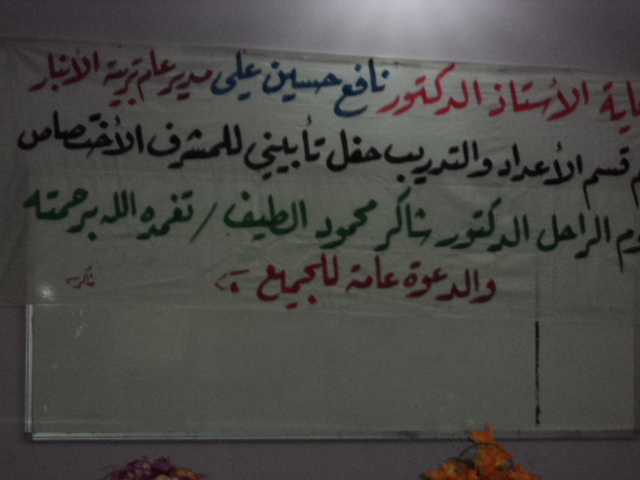 الأستاذ الدكتور نافع حسين علي مدير عام تربية الأنبار
قسم الأعداد والتدريب حفل تأبيني للمشرف الأختصاص
الراحل الدكتور شاكر محمود الطيف / تغمده الله برحمته
والدعوة عامة للجميع